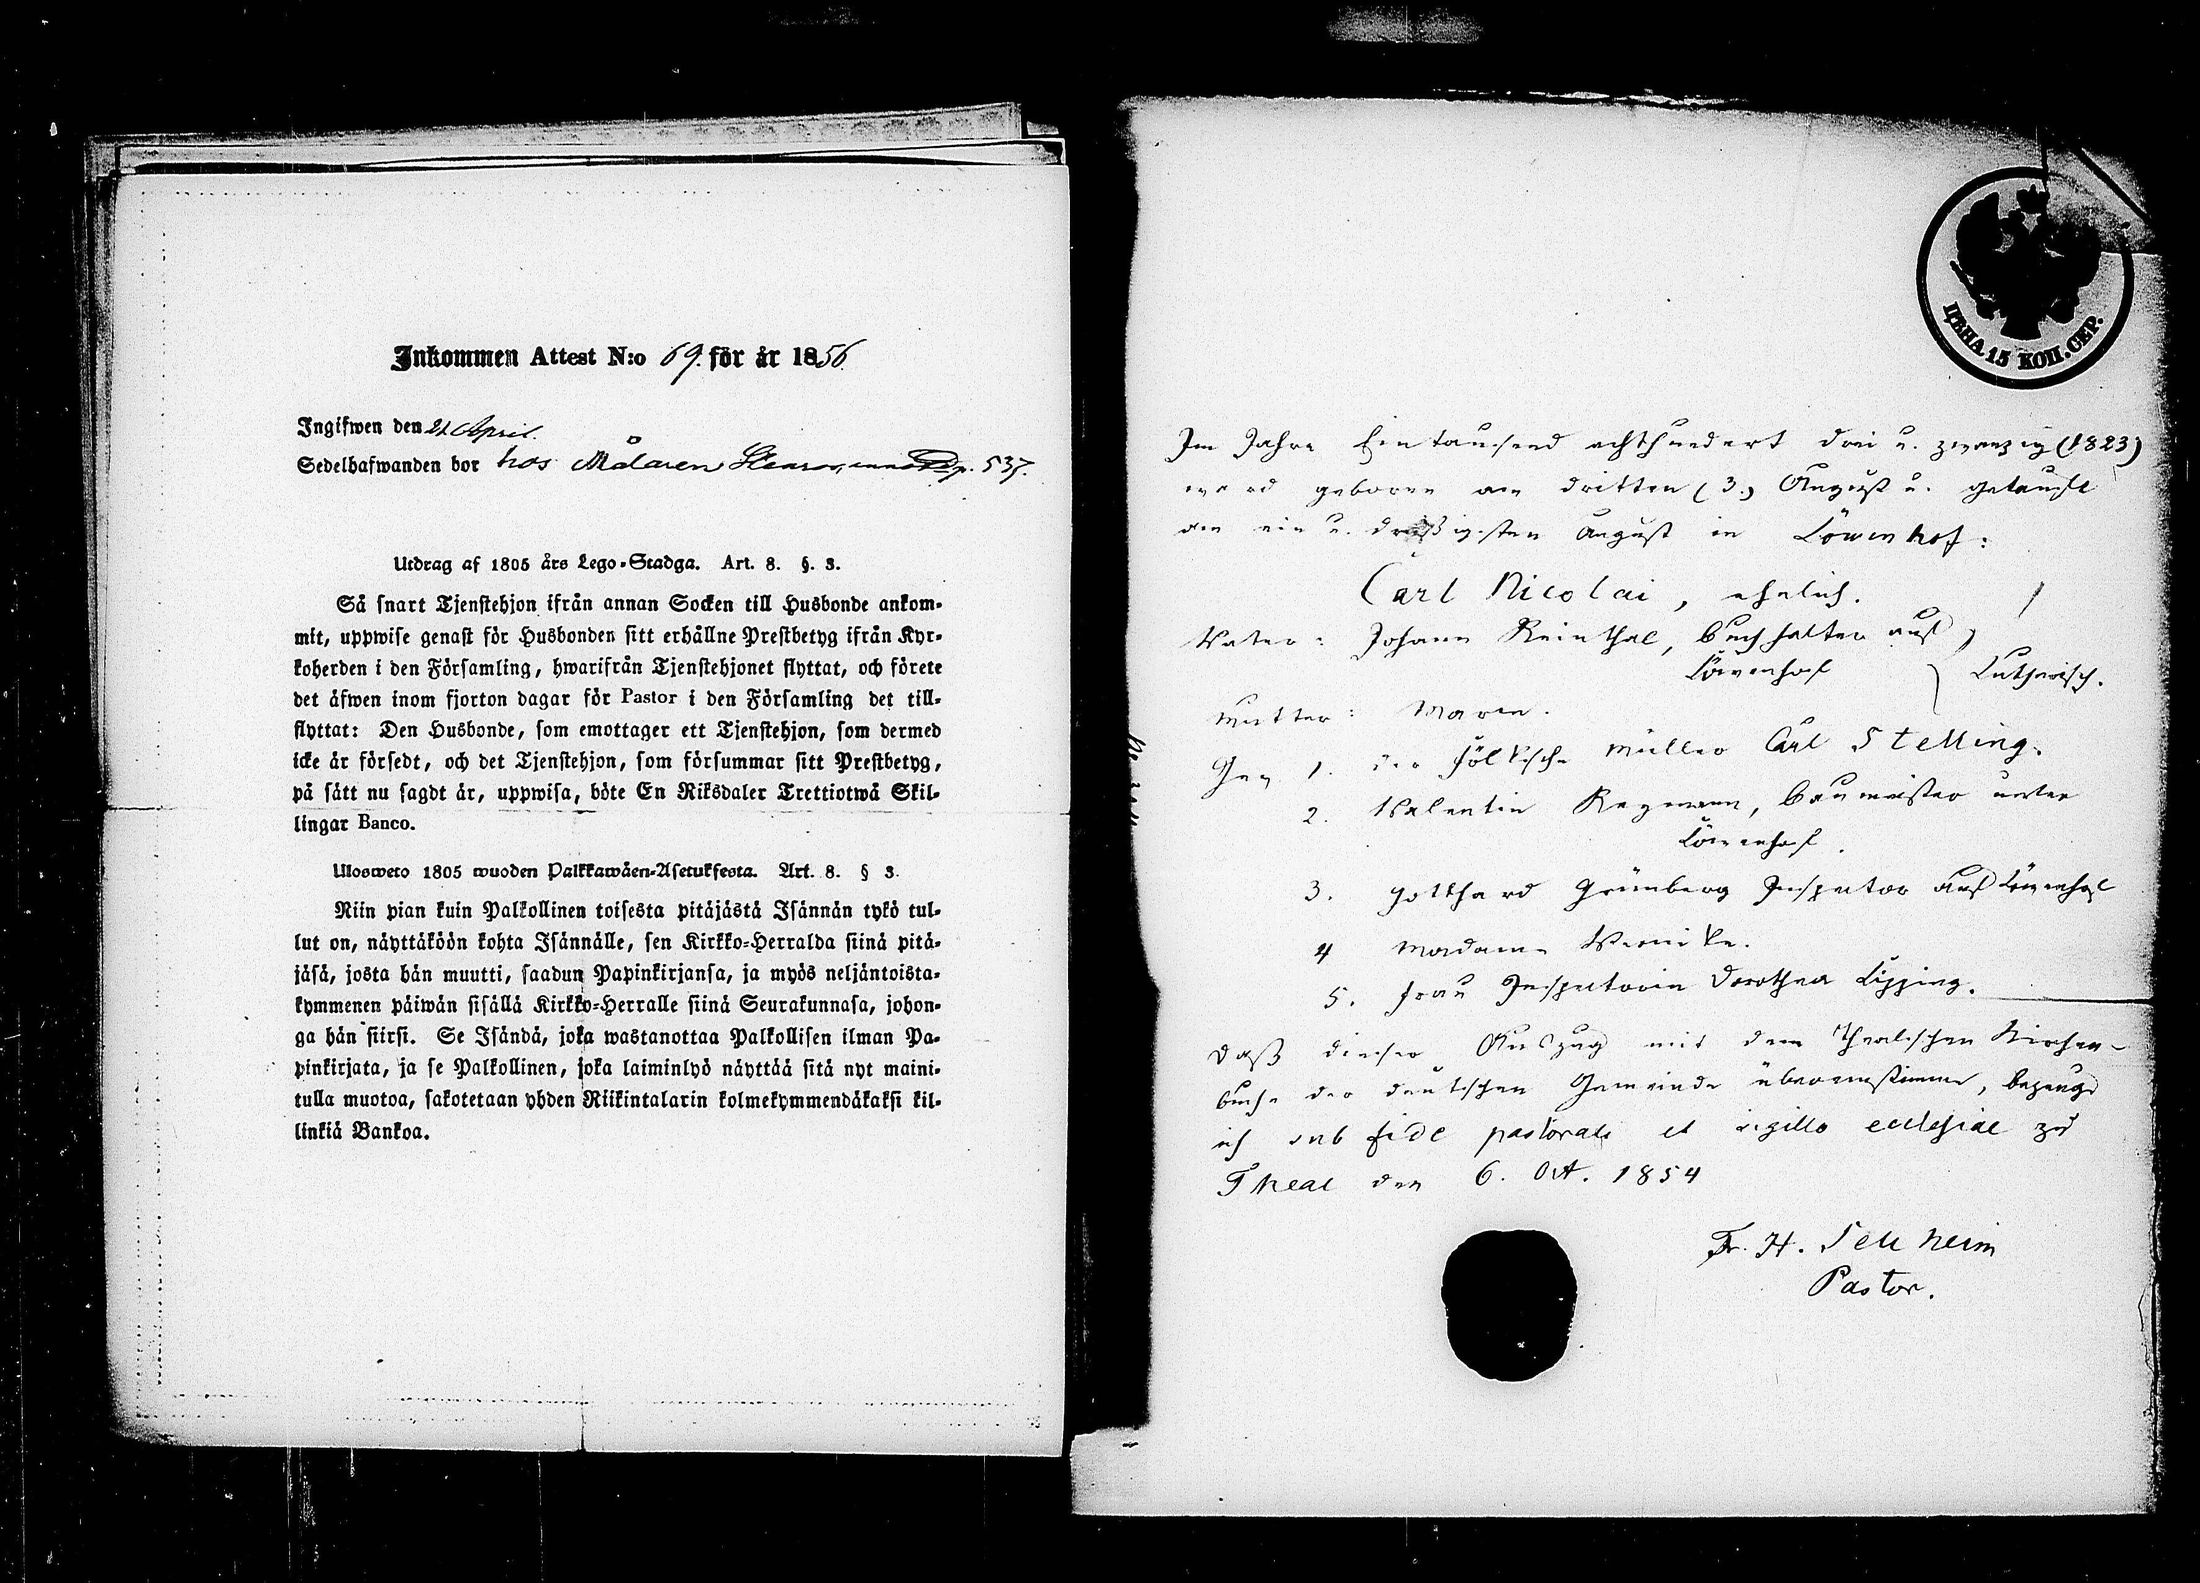 Inkommen Attest N:o 69. för år 1856
Ingifwen den 21 April.
Sedelhafwanden bor hos Målaren p. 537.
Utdrag af 1805 års Lego-Stadga. Art. 8. §. 3.
Så snart Tjenstehjon ifrån annan Socken till Husbonde ankom-
mit, uppwise genast för Husbonden sitt erhållne Prestbetyg ifrån Kyr-
koherden i den Församling, hwarifrån Tjenstehjonet flyttat, och förete
det äfwen inom fjorton dagar för Pastor i den Församling det till-
flyttat: Den Husbonde, som emottager ett Tjenstehjon, som dermed
icke är försedt, och det Tjenstehjon, som försummar sitt Prestbetyg,
på sätt nu sagdt är, uppwisa, böte En Riksdaler Trettiotwå Skil-
lingar Banco.
Ulosweto 1805 wuoden Palkkawäen-Asetuksesta. Art. 8. § 3.
Niin pian kuin Palkollinen toisesta pitäjästä Isännän tykö tul-
lut on, näyttäköön kohta Isännälle, sen Kirkko-Herralda siinä pitä-
jäsä, josta hän muutti, saadun Papinkirjansa, ja myös neljäntoista-
kymmenen päiwän sisällä Kirkko-Herralle siinä Seurakunnasa, johon-
ga hän siirsi. Se Isändä, joka wastanottaa Palkollisen ilman Pa-
pinkirjata, ja se Palkollinen, joka laiminlyö näyttää sitä nyt maini-
tulla muotoa, sakotetaan yhden Riikintalarin kolmekymmendäkaksi kil-
linkiä Bankoa.
ЦѢНА 15 КОП. СЕР.
Im Jahre Ein tausend achthundert drei u. zwanzig (1823)
ward geboren am dritten (3.) August u. getauft
am ein u. dreißigsten August in Löwenhof:
Carl Nicolai, ehelich.
Vater: Johann Reinthal, Buchhalter auß
Löwenhof
Lutherisch.
Mutter: Marie.
Gev 1. der Hölksche Müller Carl Stelling.
2. Valentin Regmann, Baumeister unter
Löwenhof.
3. Gotthard Grünberg Inspector auß Löwenhof
4 Madame Wernike.
5. Frau Inspectorin Dorothea Lipping.
Daß dieser Auszug mit dem Thealschen Kirchen-
buche der deutschen Gemeinde übereinstimme, bezeuge
ich sub fide pastorali et sigillo ecclesiae zu
Theal den 6. Oct. 1854
Fr. H. Sellheim
Pastor.